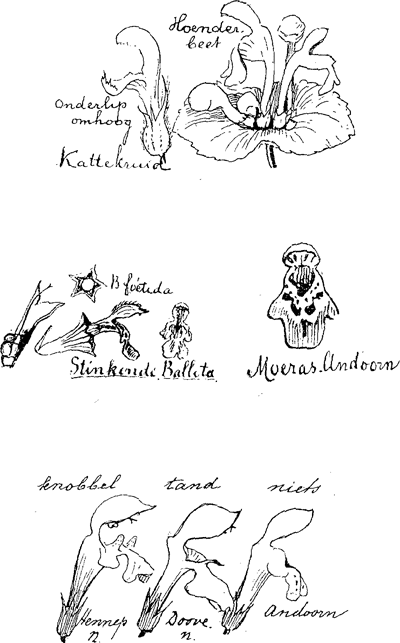 Hoender.
beet
Onderlip
omhoog
Kattekruid
B. foetida
Stinkende Ballota
Moeras.Andoorn
knobbel tand niets
Hennep
n.
Doove.
n.
Andoorn